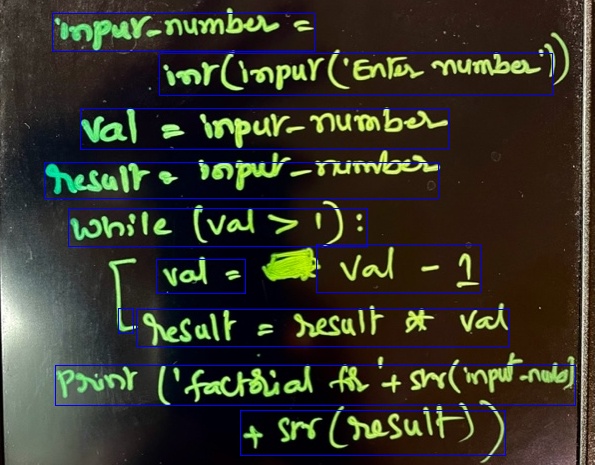 input_number =
int(input('Enter number'))
val = input_number
result = input_number
while (val > 1):
val = val - 1
result = result * val
print ('factorial for' + str(input_number)
+ str(result))